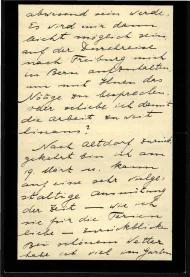 abwesend sein werde.
Es wird mir dann
leicht möglich sein
auf der Durchreise
nach Freiburg mich
in Bern aufzuhalten
um mit Ihnen das
Nötige zu besprechen.
oder schiebe ich damit
die Arbeit zu weit
hinaus?
Nach Altdorf zurück-
gekehrt bin ich am
19. dort u. kann
auf eine sehr
der Zeit — wie ich
sie für die Ferien
liebe — zurückblicken
Bei schönem Wetter
habe ich viel im Garten